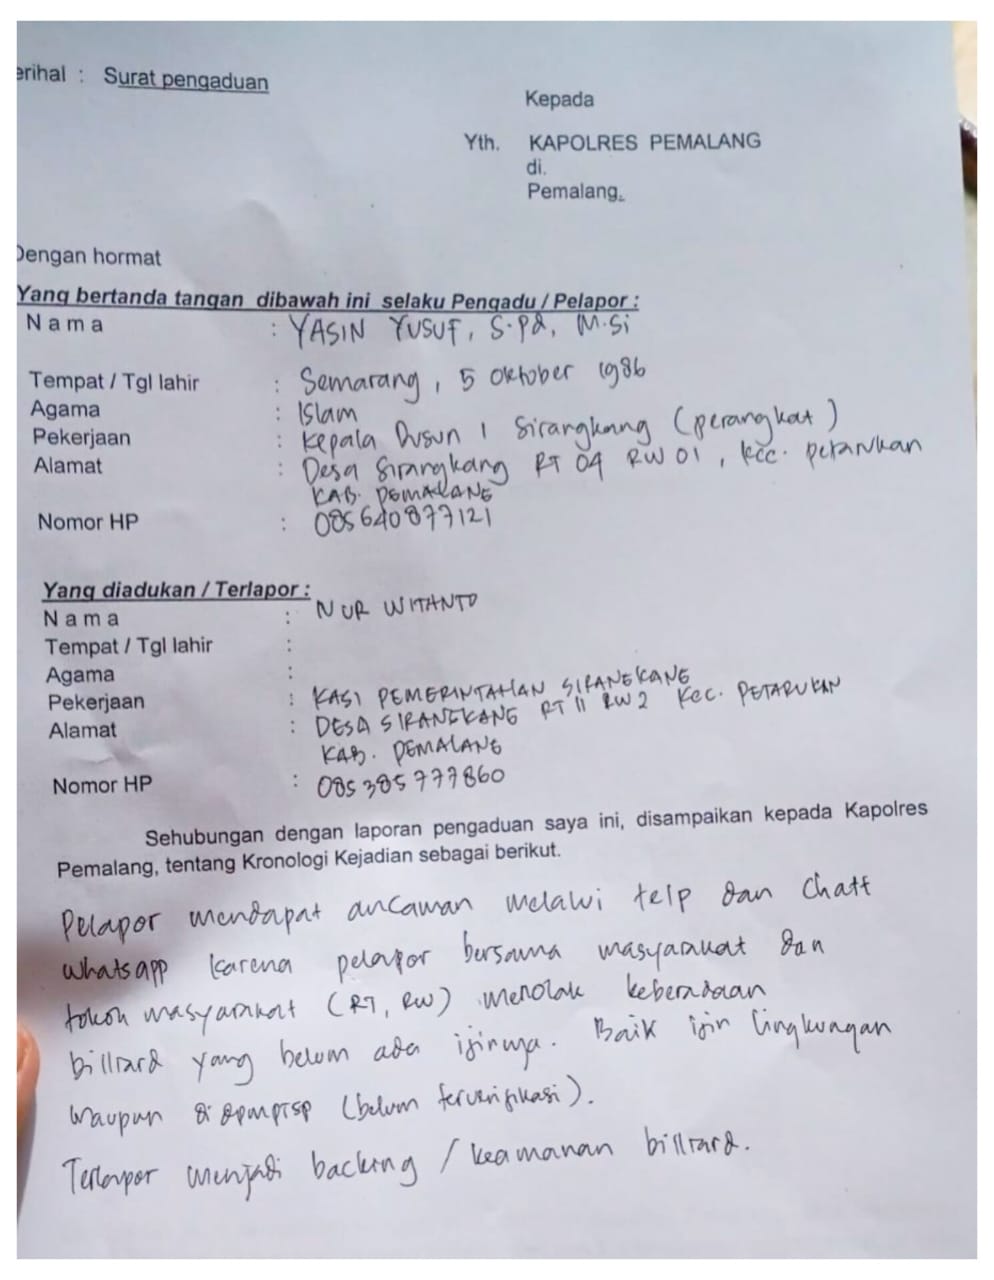 erihal : Surat pengaduan
Kepada
Yth. KAPOLRES PEMALANG
di.
Pemalang.
Dengan hormat
Yang bertanda tangan dibawah ini selaku Pengadu / Pelapor :
N a m a : YASIN YUSUF, S.Pd, M.Si
Tempat / Tgl lahir : Semarang, 5 Oktober 1986
Agama : Islam
Pekerjaan : Kepala Dusun 1 Sirangkang (perangkat)
Alamat : Desa Sirangkang RT 04 RW 01, Kec. Petarukan
KAB. PEMALANG
Nomor HP : 085640877121
Yang diadukan / Terlapor :
N a m a : NUR WITANTO
Tempat / Tgl lahir :
Agama :
Pekerjaan : KASI PEMERINTAHAN SIRANGKANG
Alamat : DESA SIRANGKANG RT 11 RW 2 Kec. PETARUKAN
KAB. PEMALANG
Nomor HP : 085385777860
Sehubungan dengan laporan pengaduan saya ini, disampaikan kepada Kapolres
Pemalang, tentang Kronologi Kejadian sebagai berikut.
Pelapor mendapat ancaman melalui telp dan Chatt
Whatsapp karena pelapor bersama masyarakat dan
tokoh masyarakat (RT, RW) menolak keberadaan
billiard yang belum ada ijinnya. Baik ijin lingkungan
maupun di dpmptsp (belum terverifikasi).
Terlapor menjadi backing / keamanan billiard.